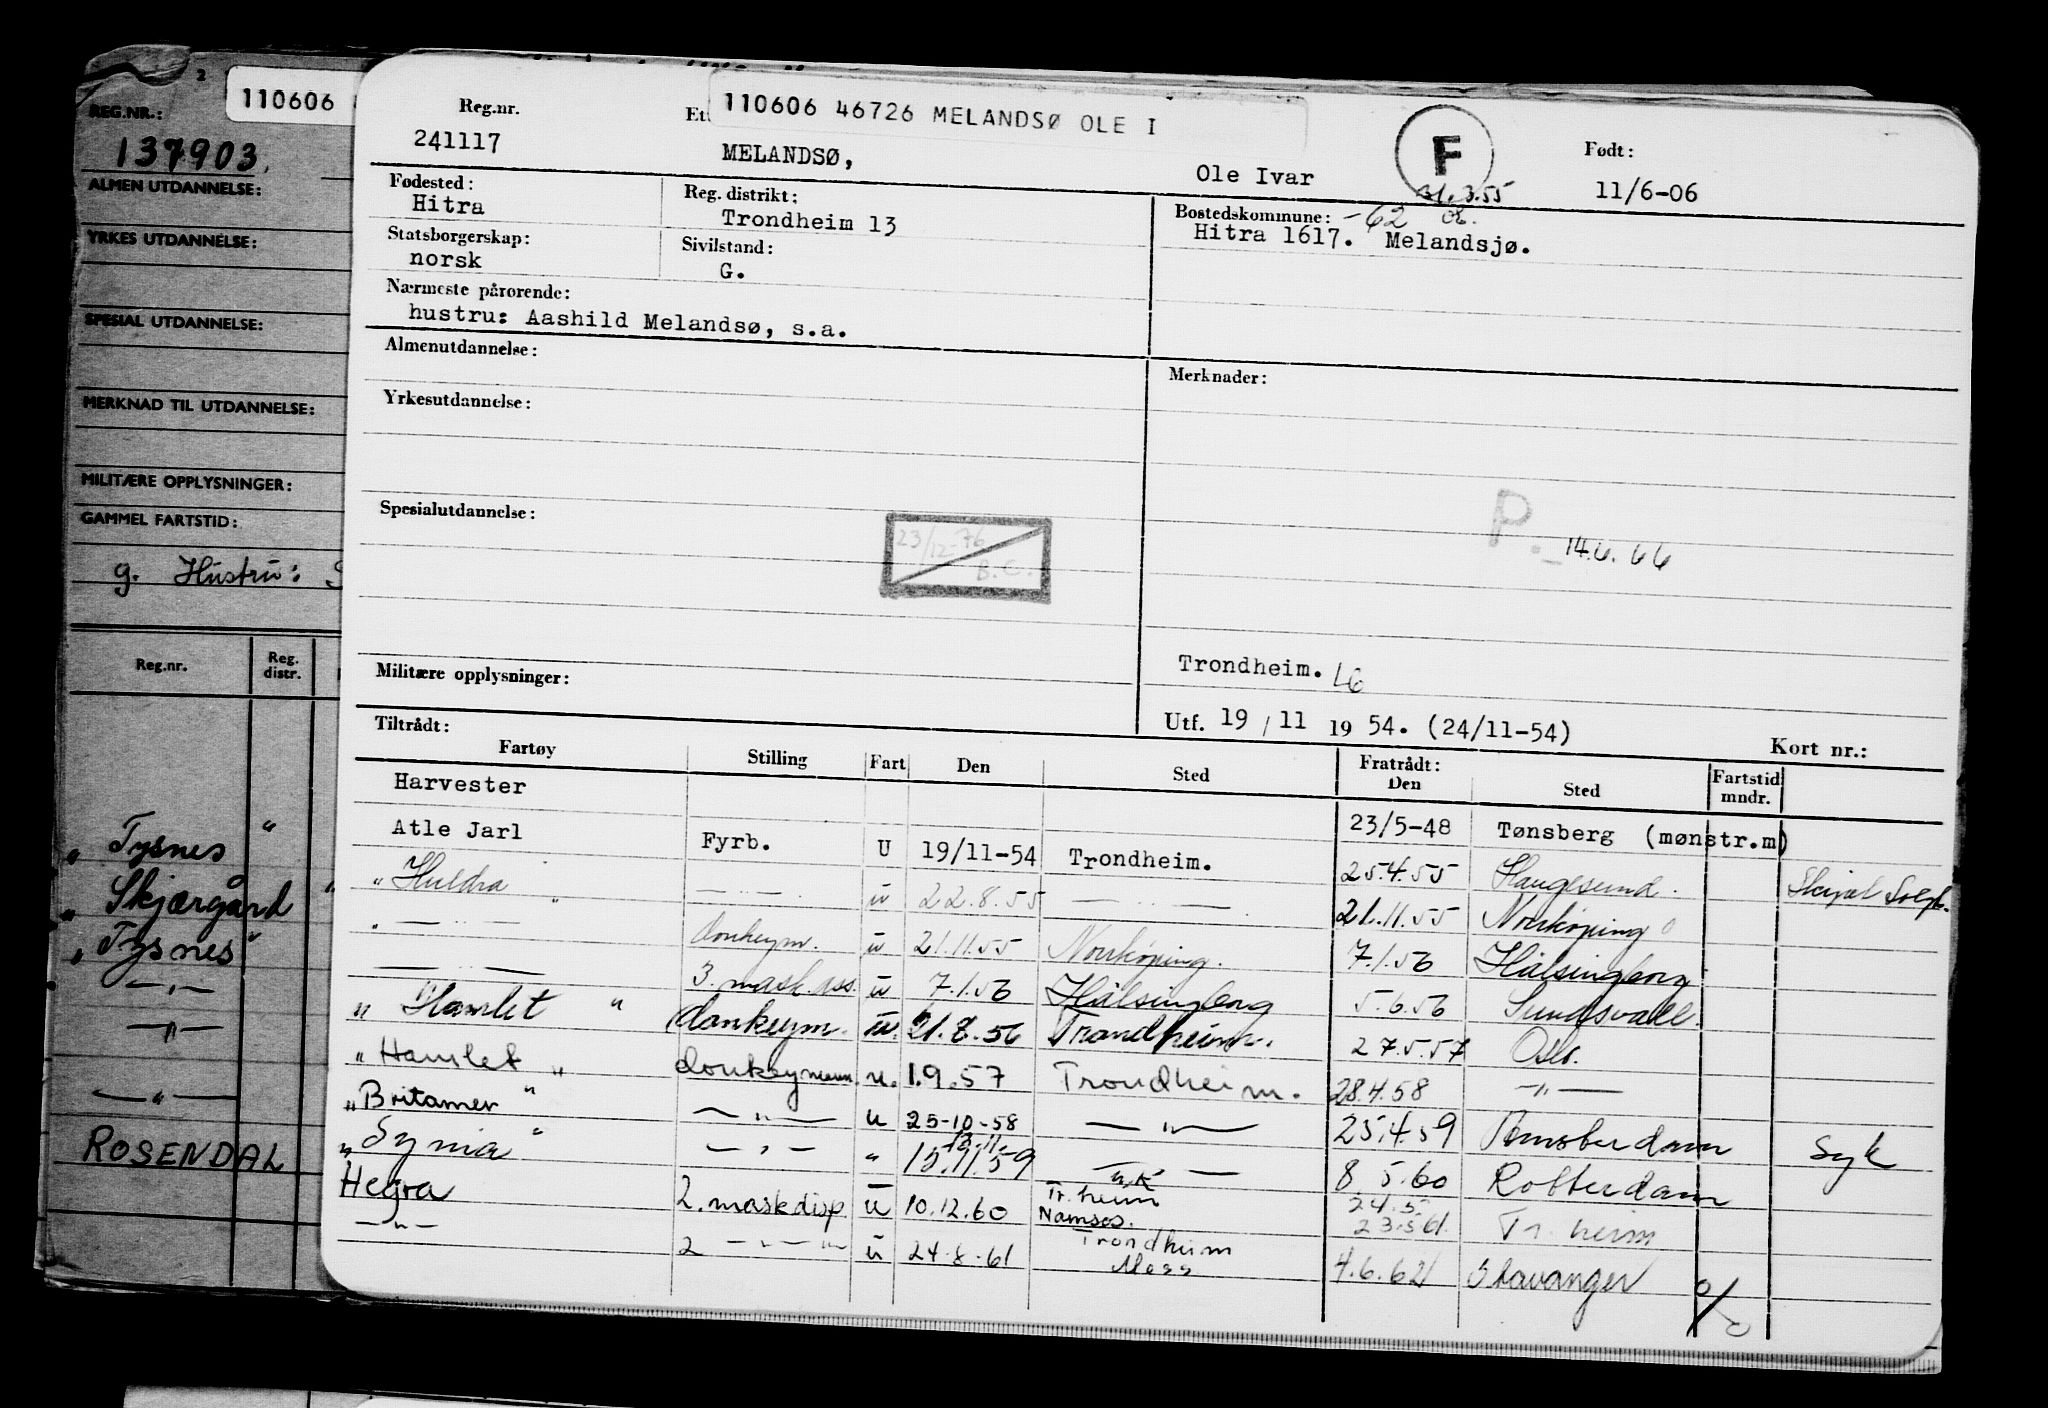 2
REG.NR.:
110606
137903.
ALMEN UTDANNELSE:
YRKES UTDANNELSE:
SPESIAL UTDANNELSE:
MERKNAD TIL UTDANNELSE:
MILITÆRE OPPLYSNINGER:
GAMMEL FARTSTID:
g. Hustru: S
Reg.nr. Reg. distr.
" Tysnes "
" Skjærgård "
" Tysnes "
— " —
— " —
— " —
ROSENDAL
110606 46726 MELANDSØ OLE I
Reg.nr. Ett F Født:
241117 MELANDSØ, Ole Ivar 11/6-06
31.3.55
Fødested: Reg. distrikt: Bostedskommune: -62
Hitra Trondheim 13 Hitra 1617. Melandsjø.
Statsborgerskap: Sivilstand:
norsk G.
Nærmeste pårørende:
hustru: Aashild Melandsø, s.a.
Almenutdannelse: Merknader:
Yrkesutdannelse:
Spesialutdannelse:
23/12-76
B.C.
P. - 14.6.66
Militære opplysninger: Trondheim. L6
Utf. 19/11 1954. (24/11-54) Kort nr.:
Tiltrådt: Fratrådt:
Fartøy Stilling Fart Den Sted Den Sted Fartstid mndr.
Harvester 23/5-48 Tønsberg (mønstr.m)
Atle Jarl Fyrb. U 19/11-54 Trondheim. 25.4.55 Haugesund. Skipet
" Huldra " — " — u 22.8.55 — " — 21.11.55 Norrköping
" — " — donkeym. u 21.11.55 Norrköping. 7.1.56 Hälsingborg
— " — 3. mask.ass. u 7.1.56 Hälsingborg 5.6.56 Sundsvall.
" Hamlet " donkeym. u. 21.8.56 Trondheim. 27.5.57 Oslo.
" Hamlet " donkeymann. u. 1.9.57 Trondheim. 28.4.58 — " —
" Britamer " — " — u 25-10-58 — " — 25.4.59 Amsterdam Syk
" Synia " — " — " 12.11.59 — " — 8 5.60 Rotterdam
Hegra 2. maskdisp u 10.12.60 Tr.heim 24.5. 23.5 61. Tr.heim
Namsos.
— " — 2 — " — u 24.8.61 Trondheim 4.6.62 Stavanger
Moss